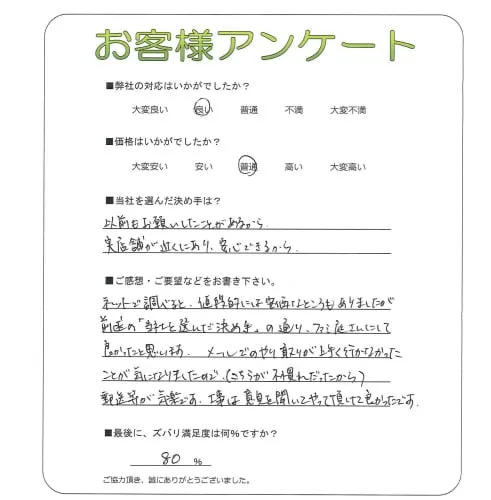 お客様アンケート
■弊社の対応はいかがでしたか？
大変良い 良い 普通 不満 大変不満
■価格はいかがでしたか？
大変安い 安い 普通 高い 大変高い
■当社を選んだ決め手は？
以前もお願いしたことがあるから、
実店舗が近くにあり、安心できるから、
■ご感想・ご要望などをお書き下さい。
ネットで調べると、値段的には安価なところもありましたが
前述の「当社を選んだ決め手」の通り、ファミ庭さんにして
良かったと思います。メールでのやり取りが上手く行かなかった
ことが気になりましたので、(こちらが不慣れだったから)
郵送等が気楽です。工事は意見を聞いてやって頂けて良かったです。
■最後に、ズバリ満足度は何%ですか？
80 %
ご協力頂き、誠にありがとうございました。